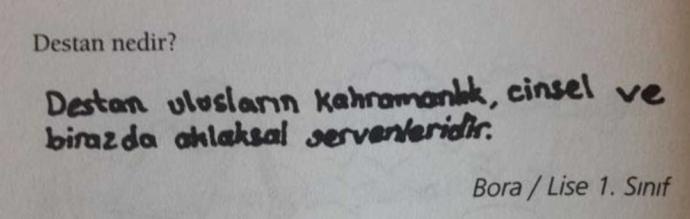 Destan nedir?
Destan ulusların kahramanlık, cinsel ve
birazda ahlaksal servenleridir.
Bora / Lise 1. Sınıf